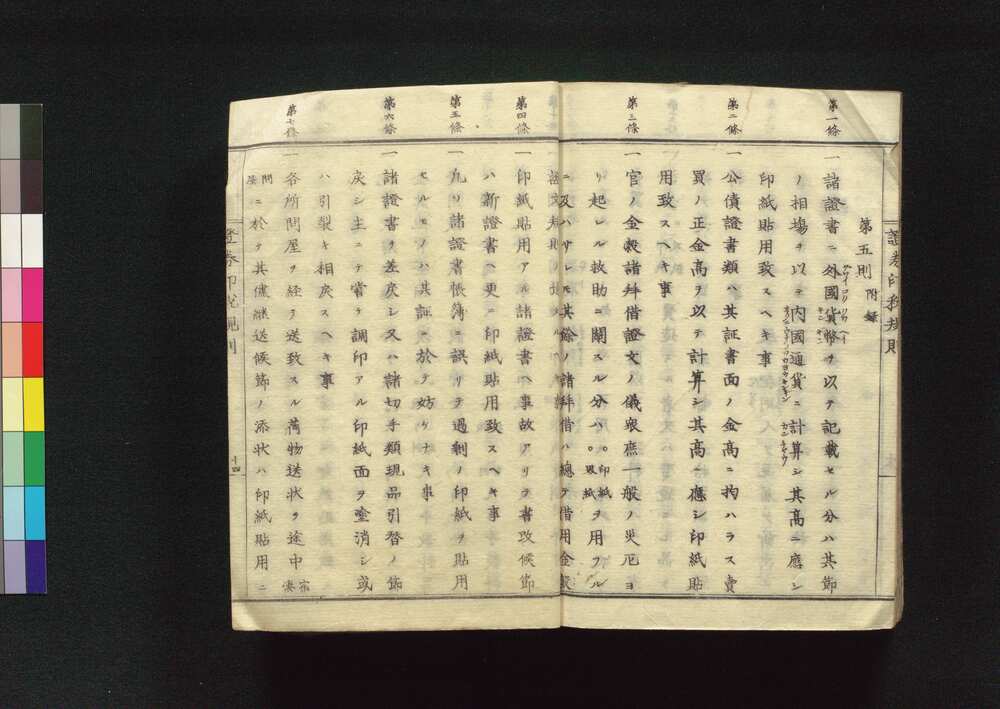 證券印税規則
第五則 附録
第一條
一諸證書ニ外國貨幣ヲ以テ記載セル分ハ其節
ノ相場ヲ以テ内國通貨ニ計算シ其高ニ應シ
印紙貼用致スヘキ事
第二條
一公債證書類ハ其証書面ノ金高ニ拘ハラス賣
買ノ正金高ヲ以テ計算シ其高ニ應シ印紙貼
用致スヘキ事
第三條
一官ノ金穀諸拜借證文ノ儀衆庶一般ノ災厄ヨ
リ起レル救助ニ關スル分ハ印紙界紙ヲ用フル
ニ及ハサレモ其餘ノ諸拜借ハ總テ借用金穀
第四條
一印紙貼用アル諸證書ヘ事故アリテ書改候節
ハ新證書ヘ更ニ印紙貼用致スヘキ事
第五條
一凡ソ諸證書帳簿ニ誤リテ過剰ノ印紙ヲ貼用
セルモノハ其証ニ於テ妨ケナキ事
第六條
一諸證書ヲ差戻シ又ハ諸切手類現品引替ノ節
戻シ主ニテ當テ調印アル印紙面ヲ塗消シ或
ハ引裂キ相戻スヘキ事
第七條
一各所問屋ヲ経テ送致スル荷物送状ヲ途中
問屋ニ於テ其儘継送候節ノ添状ハ印紙貼用ニ
證券印税規則
十四